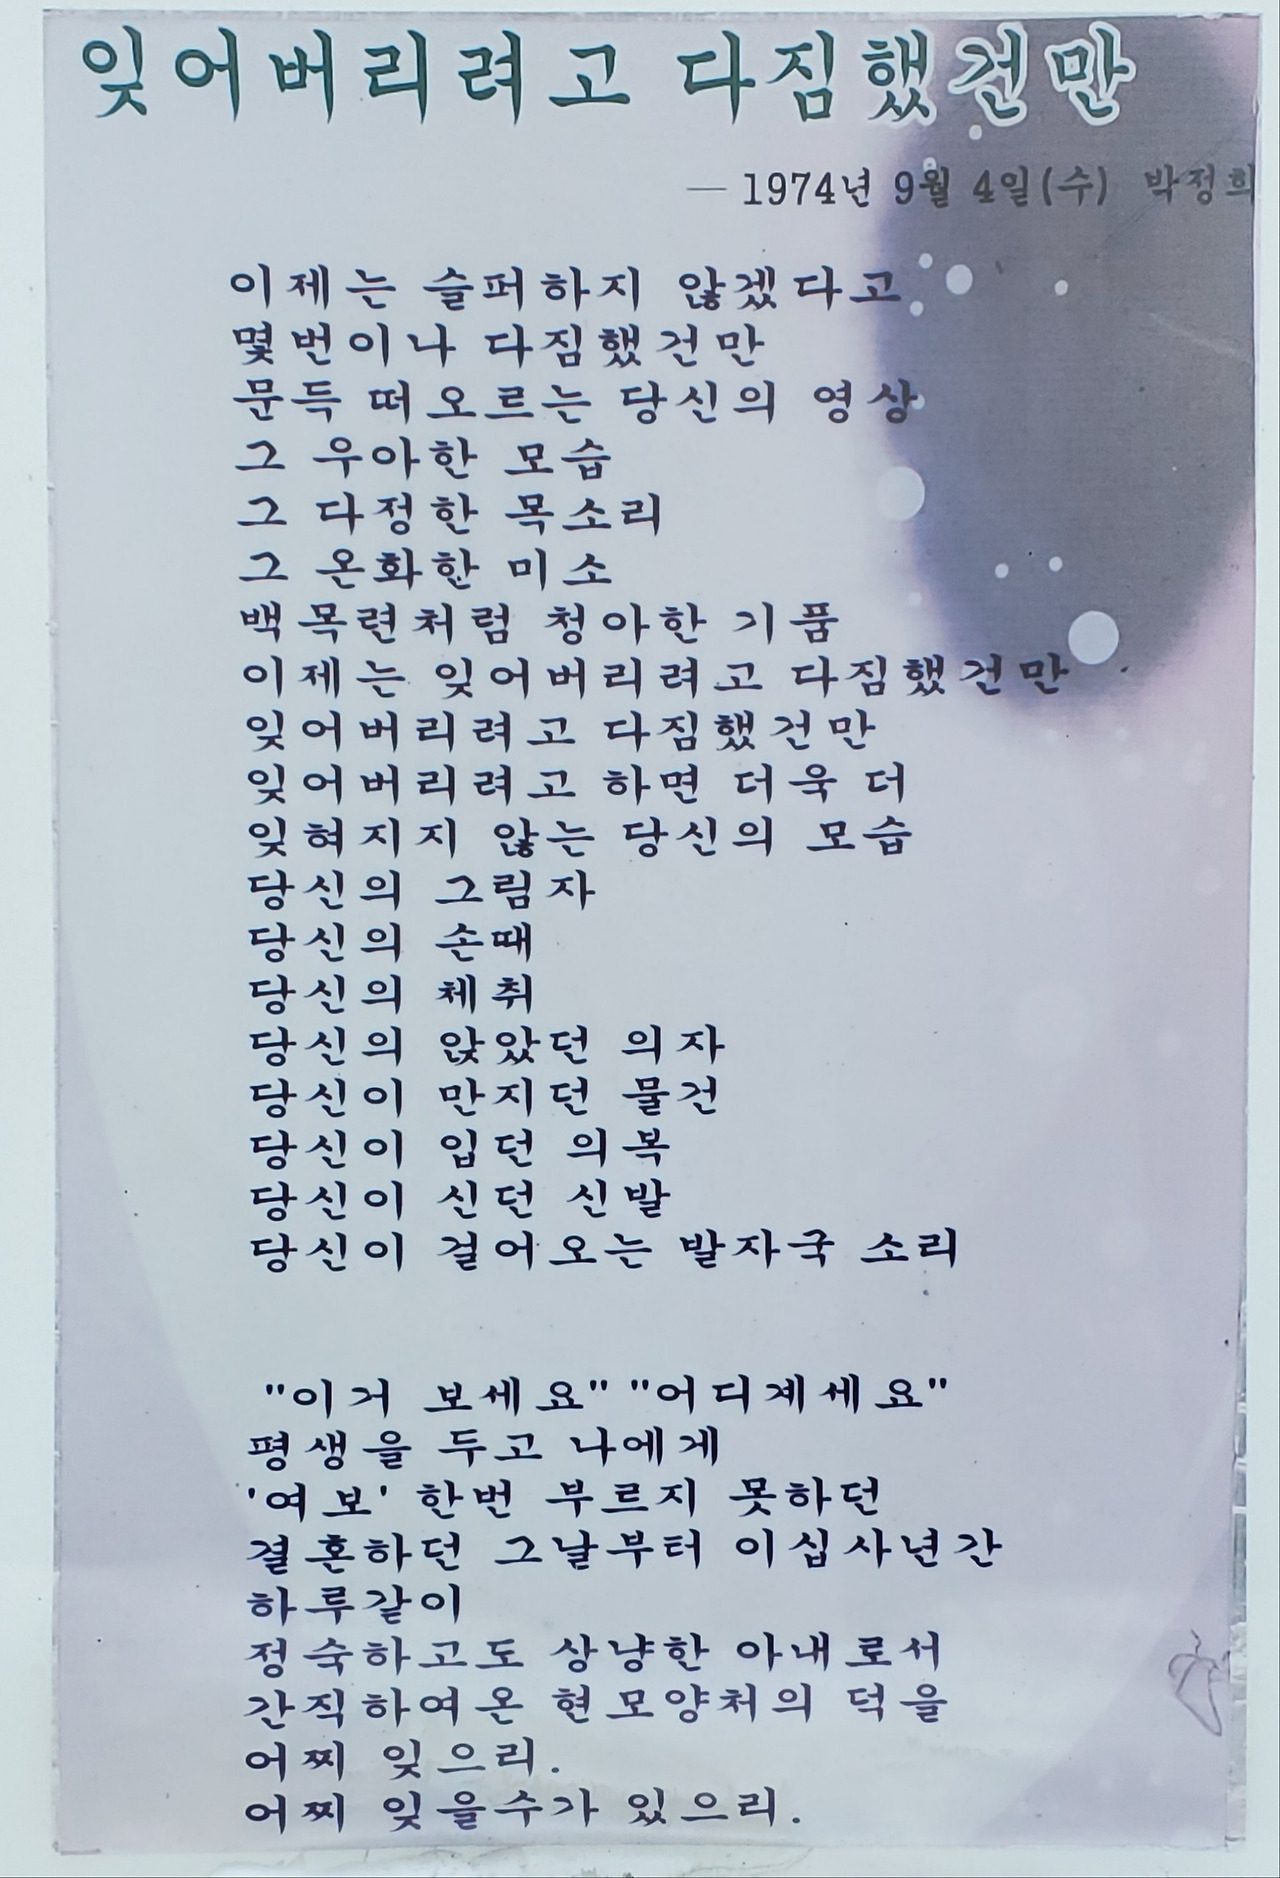 잊어버리려고 다짐했건만
— 1974년 9월 4일(수) 박정희
이제는 슬퍼하지 않겠다고
몇번이나 다짐했건만
문득 떠오르는 당신의 영상
그 우아한 모습
그 다정한 목소리
그 온화한 미소
백목련처럼 청아한 기품
이제는 잊어버리려고 다짐했건만
잊어버리려고 다짐했건만
잊어버리려고 하면 더욱 더
잊혀지지 않는 당신의 모습
당신의 그림자
당신의 손때
당신의 체취
당신의 앉았던 의자
당신이 만지던 물건
당신이 입던 의복
당신이 신던 신발
당신이 걸어오는 발자국 소리
"이거 보세요" "어디계세요"
평생을 두고 나에게
'여보' 한번 부르지 못하던
결혼하던 그날부터 이십사년간
하루같이
정숙하고도 상냥한 아내로서
간직하여온 현모양처의 덕을
어찌 잊으리.
어찌 잊을수가 있으리.